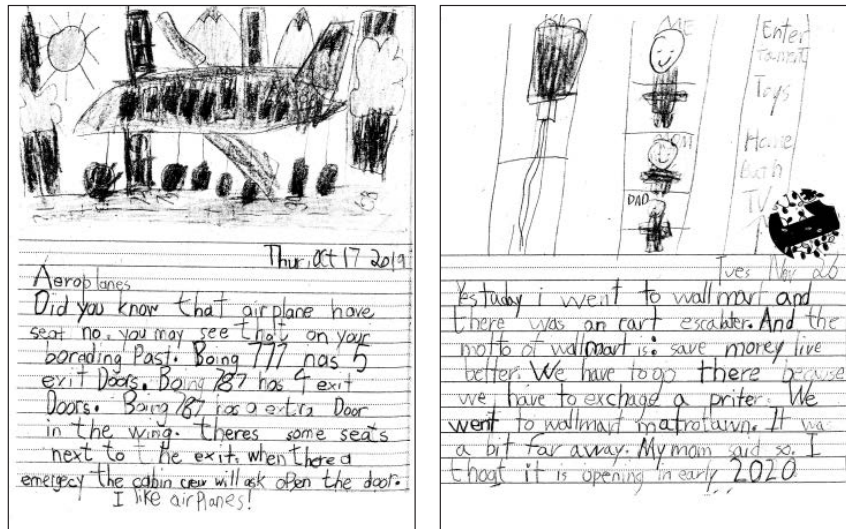 Thur, Oct 17 2019
Aeroplanes
Did you know that airplane have
seat no. you may see that on your
borading Past. Boing 777 has 5
exit Doors. Boing 787 has 4 exit
Doors. Boing 787 has a extra Door
in the wing. theres some seats
next to the exit. when there a
emergecy the cabin crew will ask open the door.
I like airplanes!
ME
MOM
DAD
Enter
tament
Toys
Home
Bath
TVs
Tues Nov 26
Yestuday i went to wallmart and
there was an cart escalater. And the
motto of wallmart is: save money live
better. We have to go there because
we have to exchage a priter. We
went to wallmart matrotawn. It was
a bit far away. My mom said so. I
thogt it is opening in early 2020